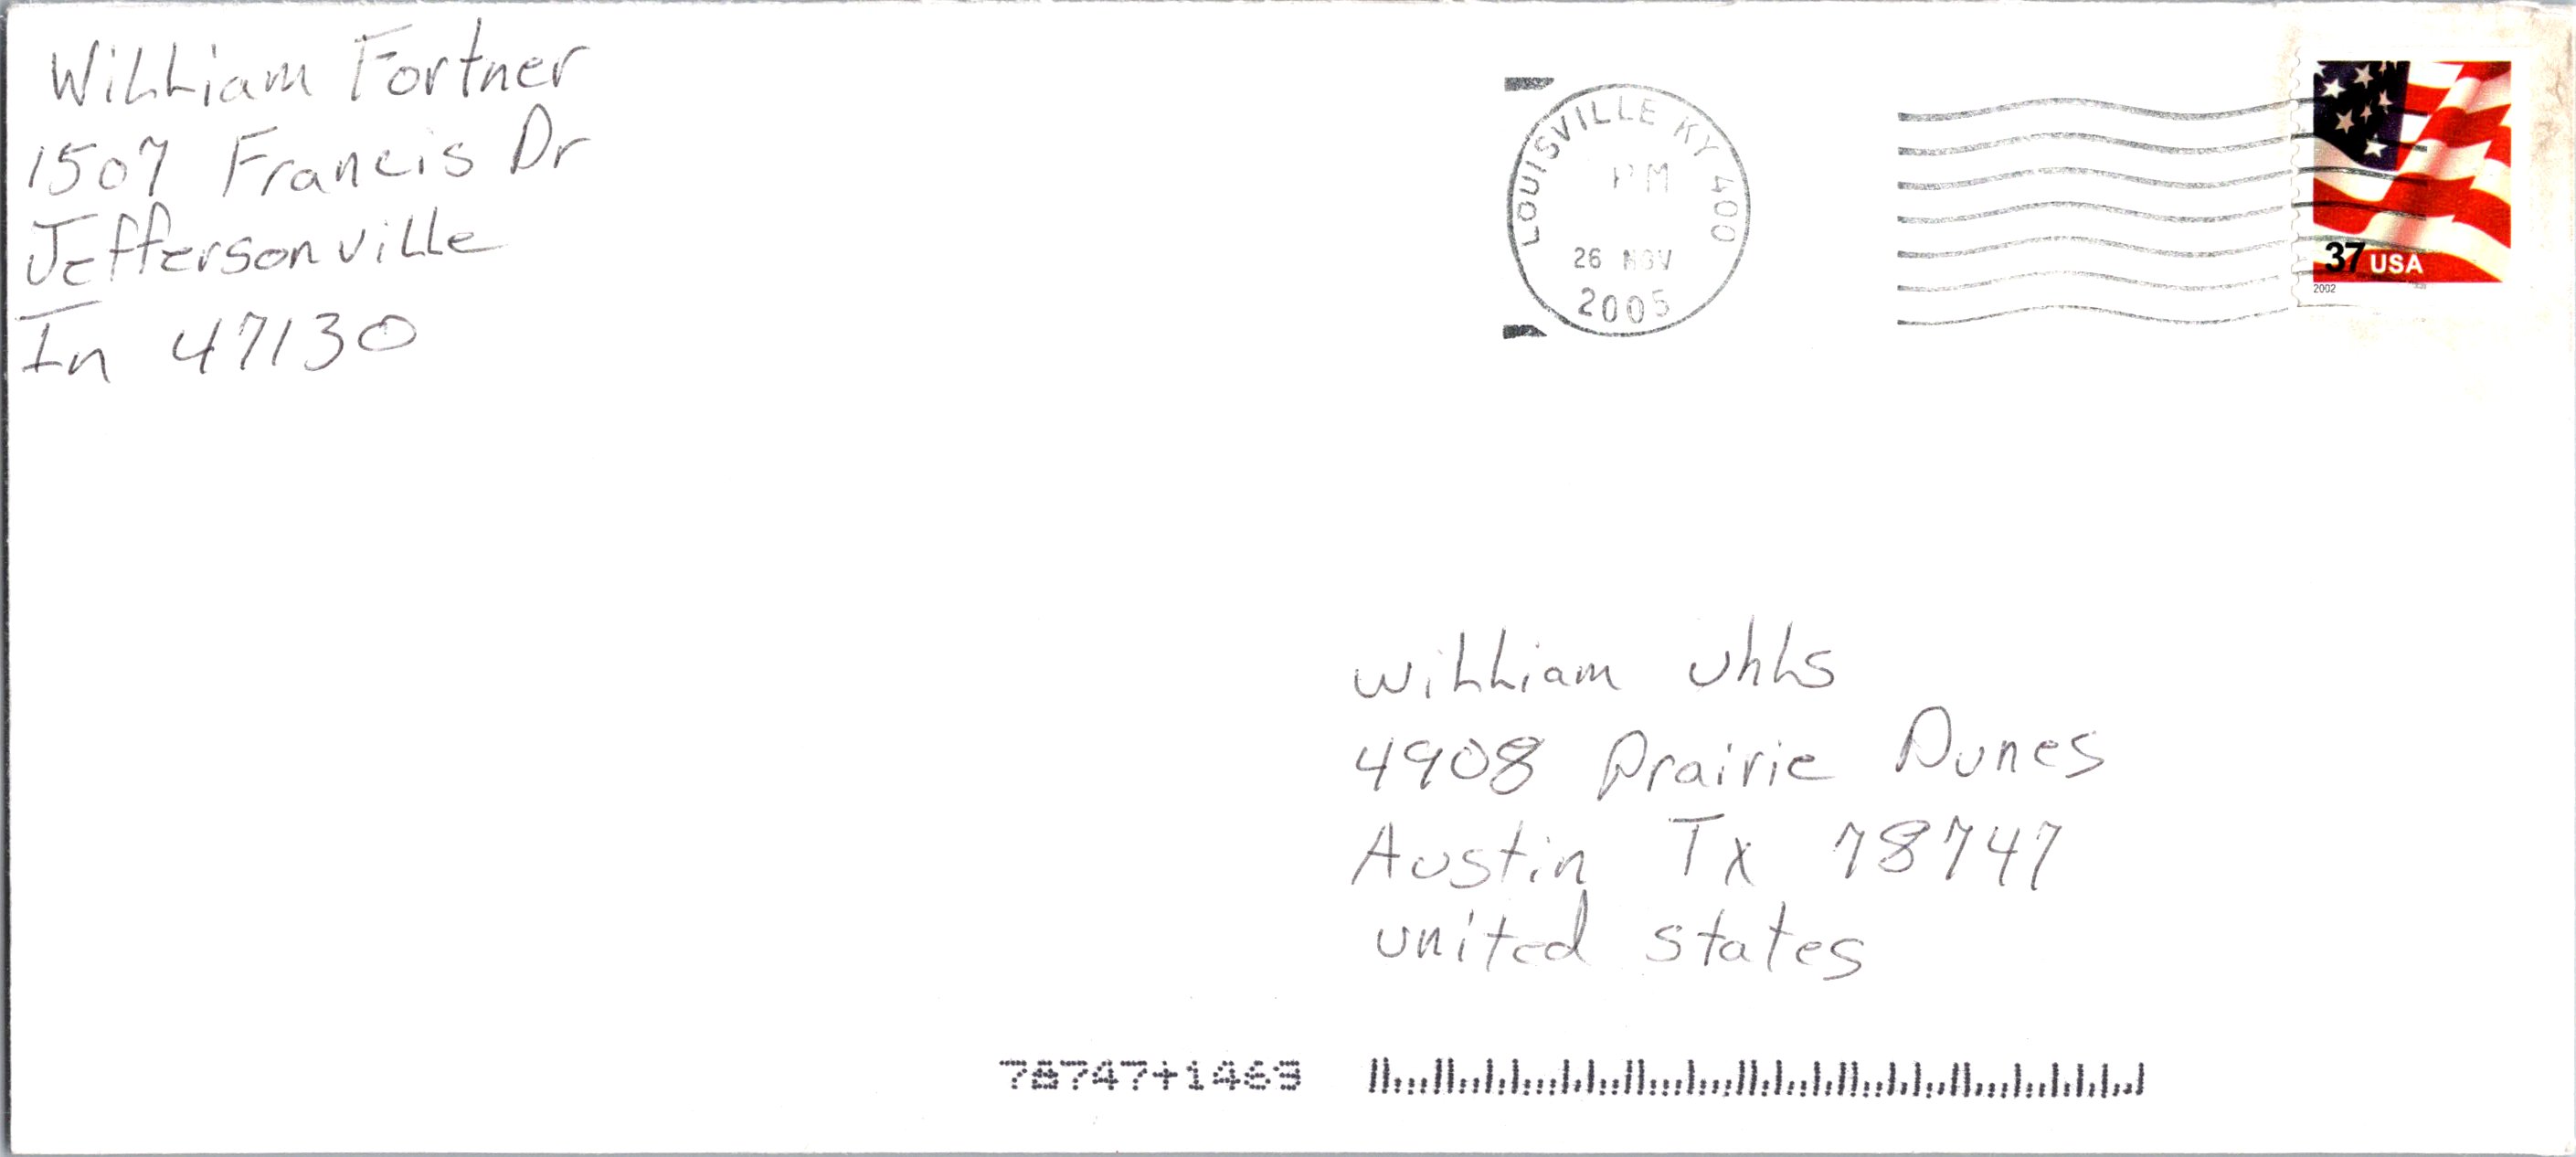 William Fortner
1507 Francis Dr
Jeffersonville
In 47130
LOUISVILLE KY 400
PM
26 NOV
2005
37 USA
2002
William Uhls
4908 Prairie Dunes
Austin Tx 78747
united states
78747+1463